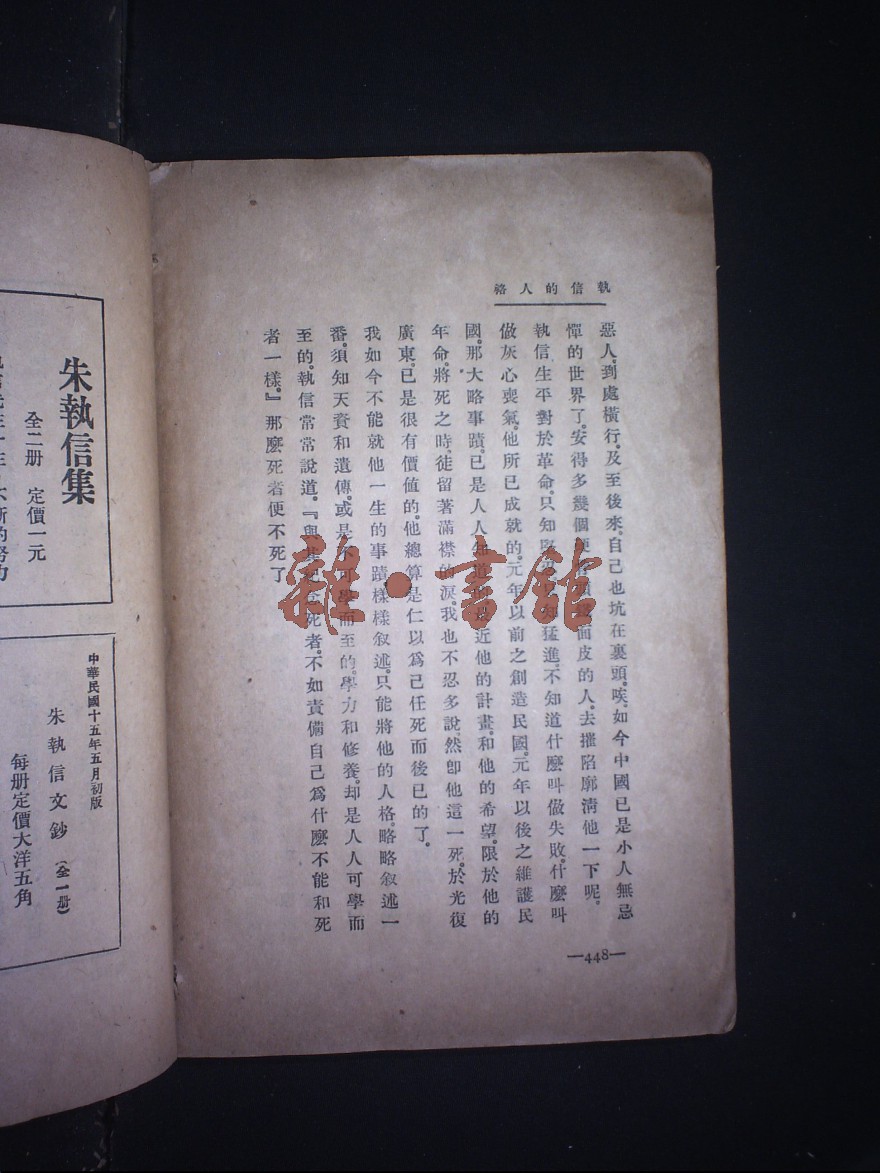 執信的人格
惡人。到處橫行。及至後來。自己也坑在裏頭。唉。如今中國已是小人無忌
憚的世界了。安得多幾個面皮的人。去摧陷廓清他一下呢。
執信生平對於革命。只知猛進。不知道什麼叫做失敗。什麼叫
做灰心喪氣。他所已成就的。元年以前之創造民國。元年以後之維護民
國。那大略事蹟。已是人人知道的。最近他的計畫。和他的希望。限於他的
年命。將死之時。徒留著滿襟的淚。我也不忍多說。然卽他這一死。於光復
廣東。已是很有價値的。他總算是仁以爲己任死而後已的了。
我如今不能就他一生的事蹟。樣樣叙述。只能將他的人格。略略叙述一
番。須知天資和遺傳。或是不可學而至的。學力和修養。却是人人可學而
至的。執信常常說道。『與其紀念死者。不如責備自己爲什麼不能和死
者一樣。』那麼死者便不死了
—448—
朱執信集
全二册 定價一元
中華民國十五年五月初版
朱執信文鈔(全一册)
每册定價大洋五角
雜·書館